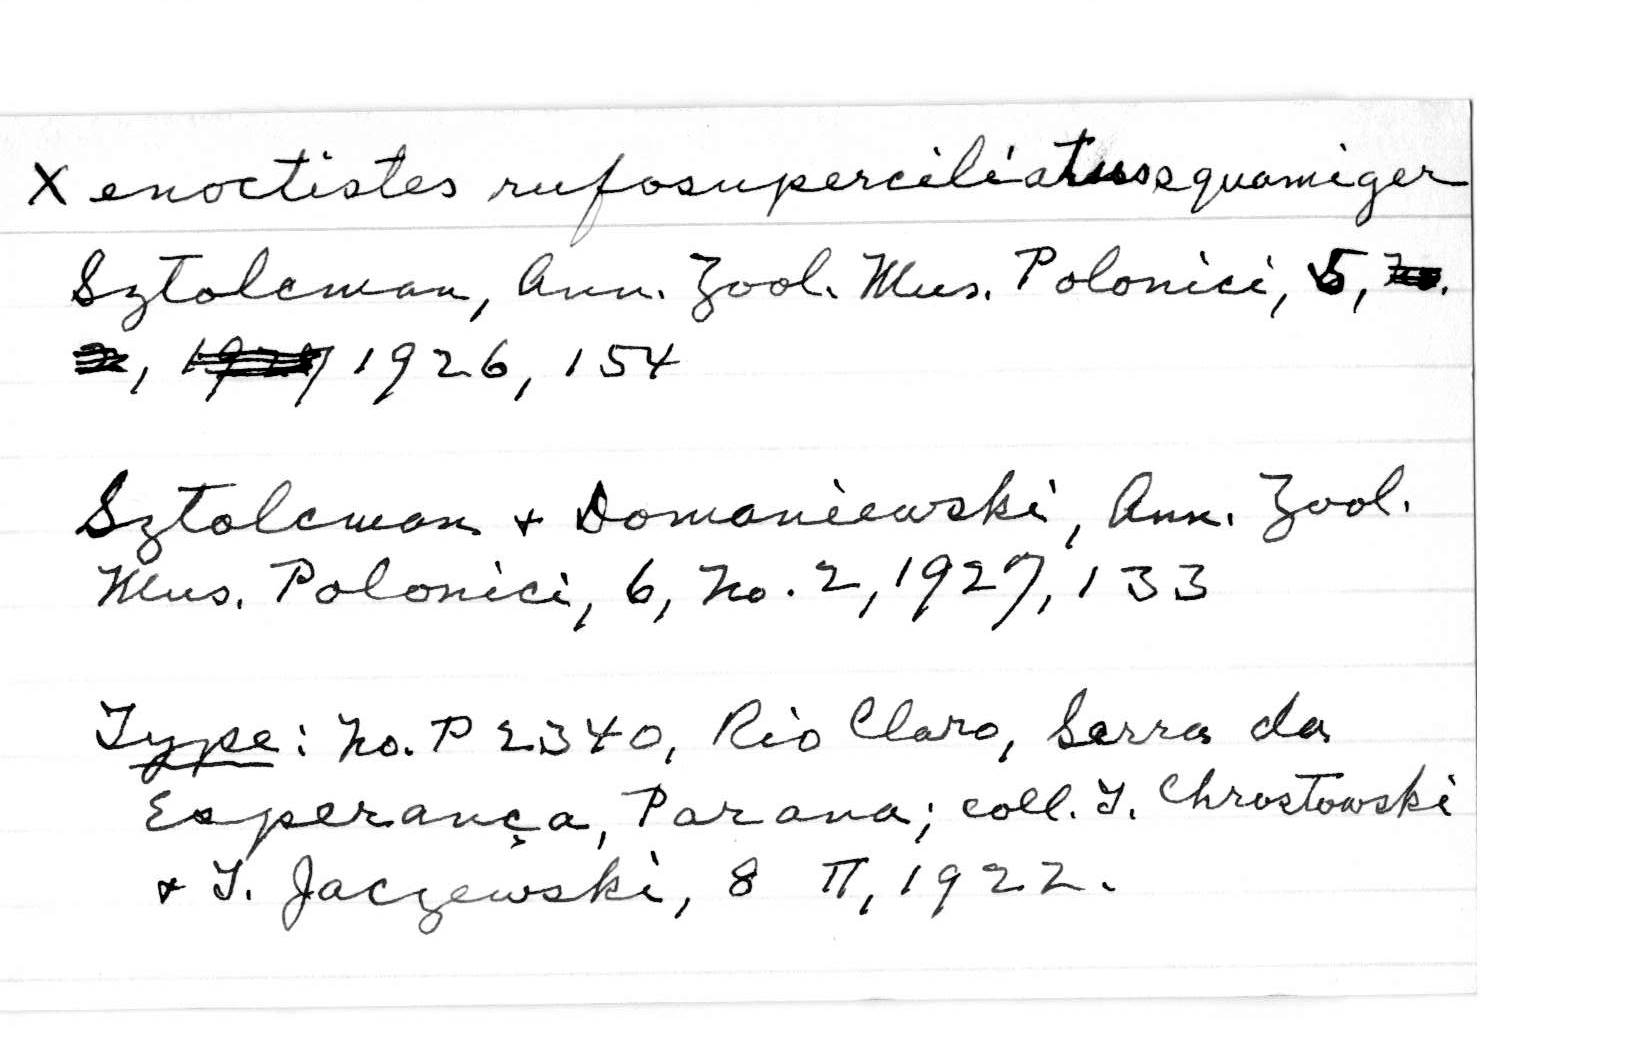 Xenoctistes rufosuperciliatus squamiger
Sztolcman, Ann. Zool. Mus. Polonici, 5, No.
2, 1927 1926, 154
Sztolcman + Domaniewski, Ann. Zool.
Mus. Polonici, 6, No. 2, 1927, 133
Type: No. P 2340, Rio Claro, Serra da
Esperança, Parana; coll. T. Chrostowski
+ T. Jaczewski, 8 II, 1922.